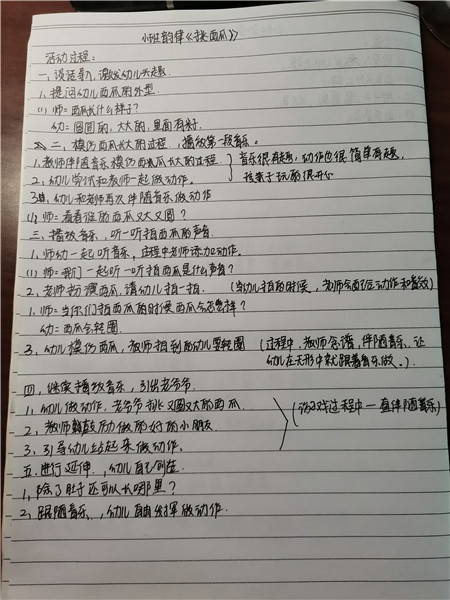 小班韵律《挑西瓜》
活动过程:
一、谈话导入,激发幼儿兴趣.
1、提问幼儿西瓜的外型.
(1) 师=西瓜长什么样子?
幼=圆圆的,大大的,里面有籽.
二、模仿西瓜长大的过程,播放第一段音乐。
1.教师伴随音乐模仿西瓜长大的过程.
音乐很有趣,动作也很简单有趣,
孩子玩的很开心
2、幼儿学仿和教师一起做动作。
3、幼儿和老师再次伴随音乐做动作
(1)师=看看谁的西瓜又大又圆?
三、播放音乐,听一听拍西瓜的声音
1.师幼一起听音乐,过程中老师添加动作。
(1)师=我们一起听一听拍西瓜是什么声音?
2、老师扮演西瓜,请幼儿拍一拍. (当幼儿拍的时候,老师会配合动作和音效)
1.师=当你们拍西瓜的时候西瓜会怎么样?
幼=西瓜会转圈.
3、幼儿模仿西瓜,教师拍到的幼儿要转圈 (过程中,教师念谱,伴随音乐,让
幼儿在无形中就跟着音乐做。)
四、继续播放音乐,引出老爷爷.
1、幼儿做动作.老爷爷挑又圆又大的西瓜.
(游戏过程中一直伴随音乐)
2、教师鼓励做的好的小朋友.
3、引导幼儿站起来做动作.
五.进行延伸,幼儿自己创编.
1、除了肚子还可以长哪里?
2、跟随音乐,幼儿自由发挥做动作.